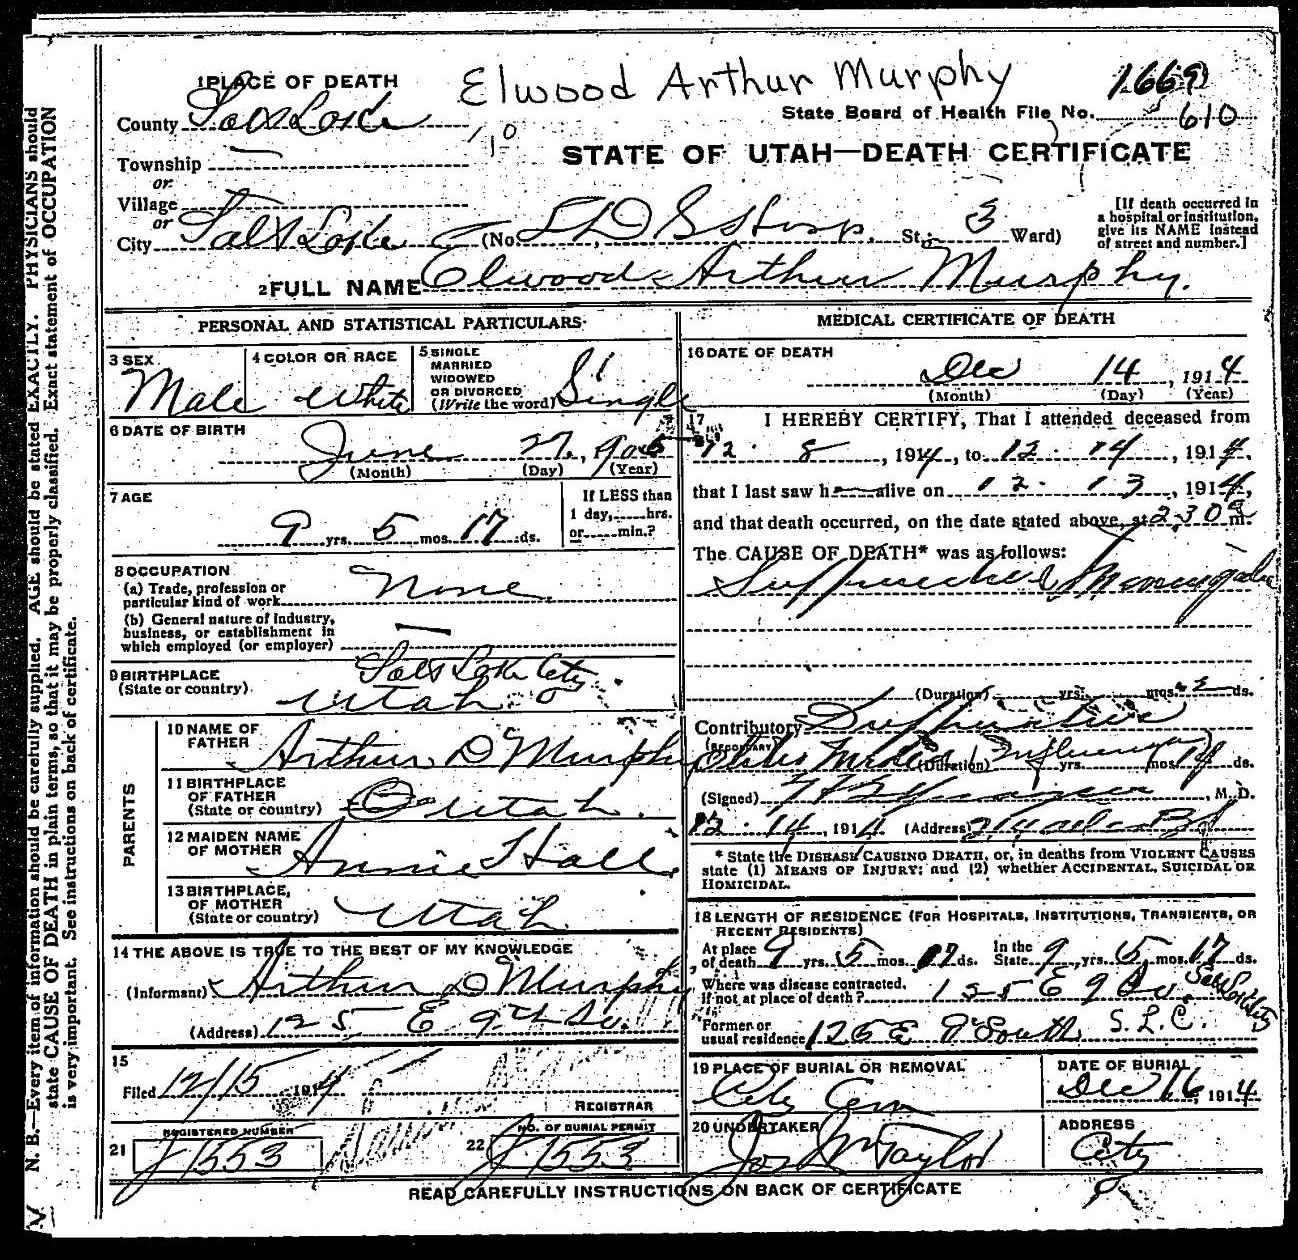 Elwood Arthur Murphy
1669
1 PLACE OF DEATH
State Board of Health File No. 610
County Salt Lake
STATE OF UTAH—DEATH CERTIFICATE
Township —
or
Village
or
City Salt Lake (No. L D S Hosp. St.; 3 Ward)
[If death occurred in a hospital or institution, give its NAME instead of street and number.]
2 FULL NAME Elwood Arthur Murphy.
PERSONAL AND STATISTICAL PARTICULARS
3 SEX Male
4 COLOR OR RACE White
5 SINGLE MARRIED WIDOWED OR DIVORCED (Write the word) Single
6 DATE OF BIRTH June 27, 1905
(Month) (Day) (Year)
7 AGE 9 yrs. 5 mos. 17 ds.
If LESS than 1 day, hrs. or min.?
8 OCCUPATION
(a) Trade, profession or particular kind of work None
(b) General nature of industry, business, or establishment in which employed (or employer) —
9 BIRTHPLACE (State or country) Salt Lake City Utah
PARENTS
10 NAME OF FATHER Arthur D Murphy
11 BIRTHPLACE OF FATHER (State or country) Utah.
12 MAIDEN NAME OF MOTHER Annie Hall.
13 BIRTHPLACE, OF MOTHER (State or country) Utah.
14 THE ABOVE IS TRUE TO THE BEST OF MY KNOWLEDGE
(Informant) Arthur D Murphy
(Address) 125 E 9th So.
15
Filed 12/15 1914
REGISTRAR
REGISTERED NUMBER
21 1553
NO. OF BURIAL PERMIT
22 1553
MEDICAL CERTIFICATE OF DEATH
16 DATE OF DEATH
Dec 14, 1914
(Month) (Day) (Year)
17 I HEREBY CERTIFY, That I attended deceased from
12 8, 1914, to 12 14, 1914,
that I last saw h alive on 12 13, 1914,
and that death occurred, on the date stated above, at 2.30 a m.
The CAUSE OF DEATH* was as follows:
(Duration) yrs. mos. 2 ds.
Contributory Suppurative
(SECONDARY) Otitis Media (Duration) Influenza yrs. mos. ds.
(Signed) M. D.
12 14, 1914 (Address)
* State the DISEASE CAUSING DEATH, or, in deaths from VIOLENT CAUSES state (1) MEANS OF INJURY; and (2) whether ACCIDENTAL, SUICIDAL OR HOMICIDAL.
18 LENGTH OF RESIDENCE (FOR HOSPITALS, INSTITUTIONS, TRANSIENTS, OR RECENT RESIDENTS)
At place of death 9 yrs. 5 mos. 17 ds. In the State 9 yrs. 5 mos. 17 ds.
Where was disease contracted, if not at place of death? 125 E 9 So. Salt Lake City
Former or usual residence 125 E 9 South S.L.C.
19 PLACE OF BURIAL OR REMOVAL City Cem
DATE OF BURIAL Dec 16, 1914
20 UNDERTAKER Jos Wm Taylor
ADDRESS City
READ CAREFULLY INSTRUCTIONS ON BACK OF CERTIFICATE
N. B.—Every item of information should be carefully supplied. AGE should be stated EXACTLY. PHYSICIANS should
state CAUSE OF DEATH in plain terms, so that it may be properly classified. Exact statement of OCCUPATION
is very important. See instructions on back of certificate.